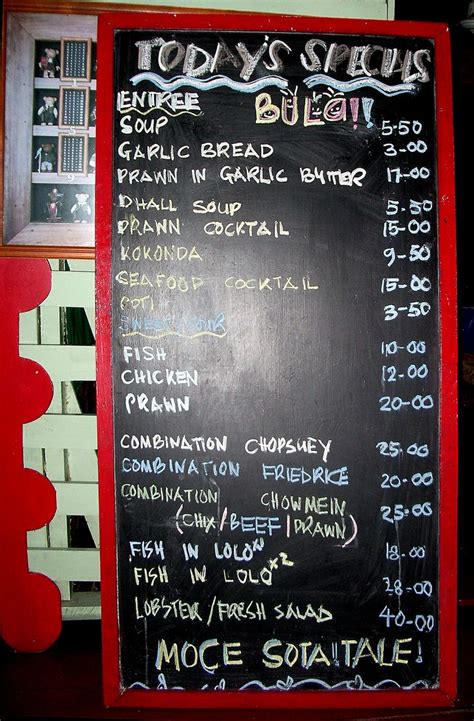 TODAY'S SPECIALS
ENTREE BULA!!
SOUP 5-50
GARLIC BREAD 3-00
PRAWN IN GARLIC BUTTER 17-00
DHALL SOUP 5-50
PRAWN COCKTAIL 15-00
KOKONDA 9-50
SEAFOOD COCKTAIL 15-00
ROTI 3-50
SWEET/SOUR
FISH 10-00
CHICKEN 12-00
PRAWN 20-00
COMBINATION CHOPSUEY 25-00
COMBINATION FRIEDRICE 20-00
COMBINATION CHOWMEIN 25-00
(CHIX/BEEF/PRAWN)
FISH IN LOLO 18-00
FISH IN LOLO x2 28-00
LOBSTER/FRESH SALAD 40-00
MOCE SOTA!TALE!